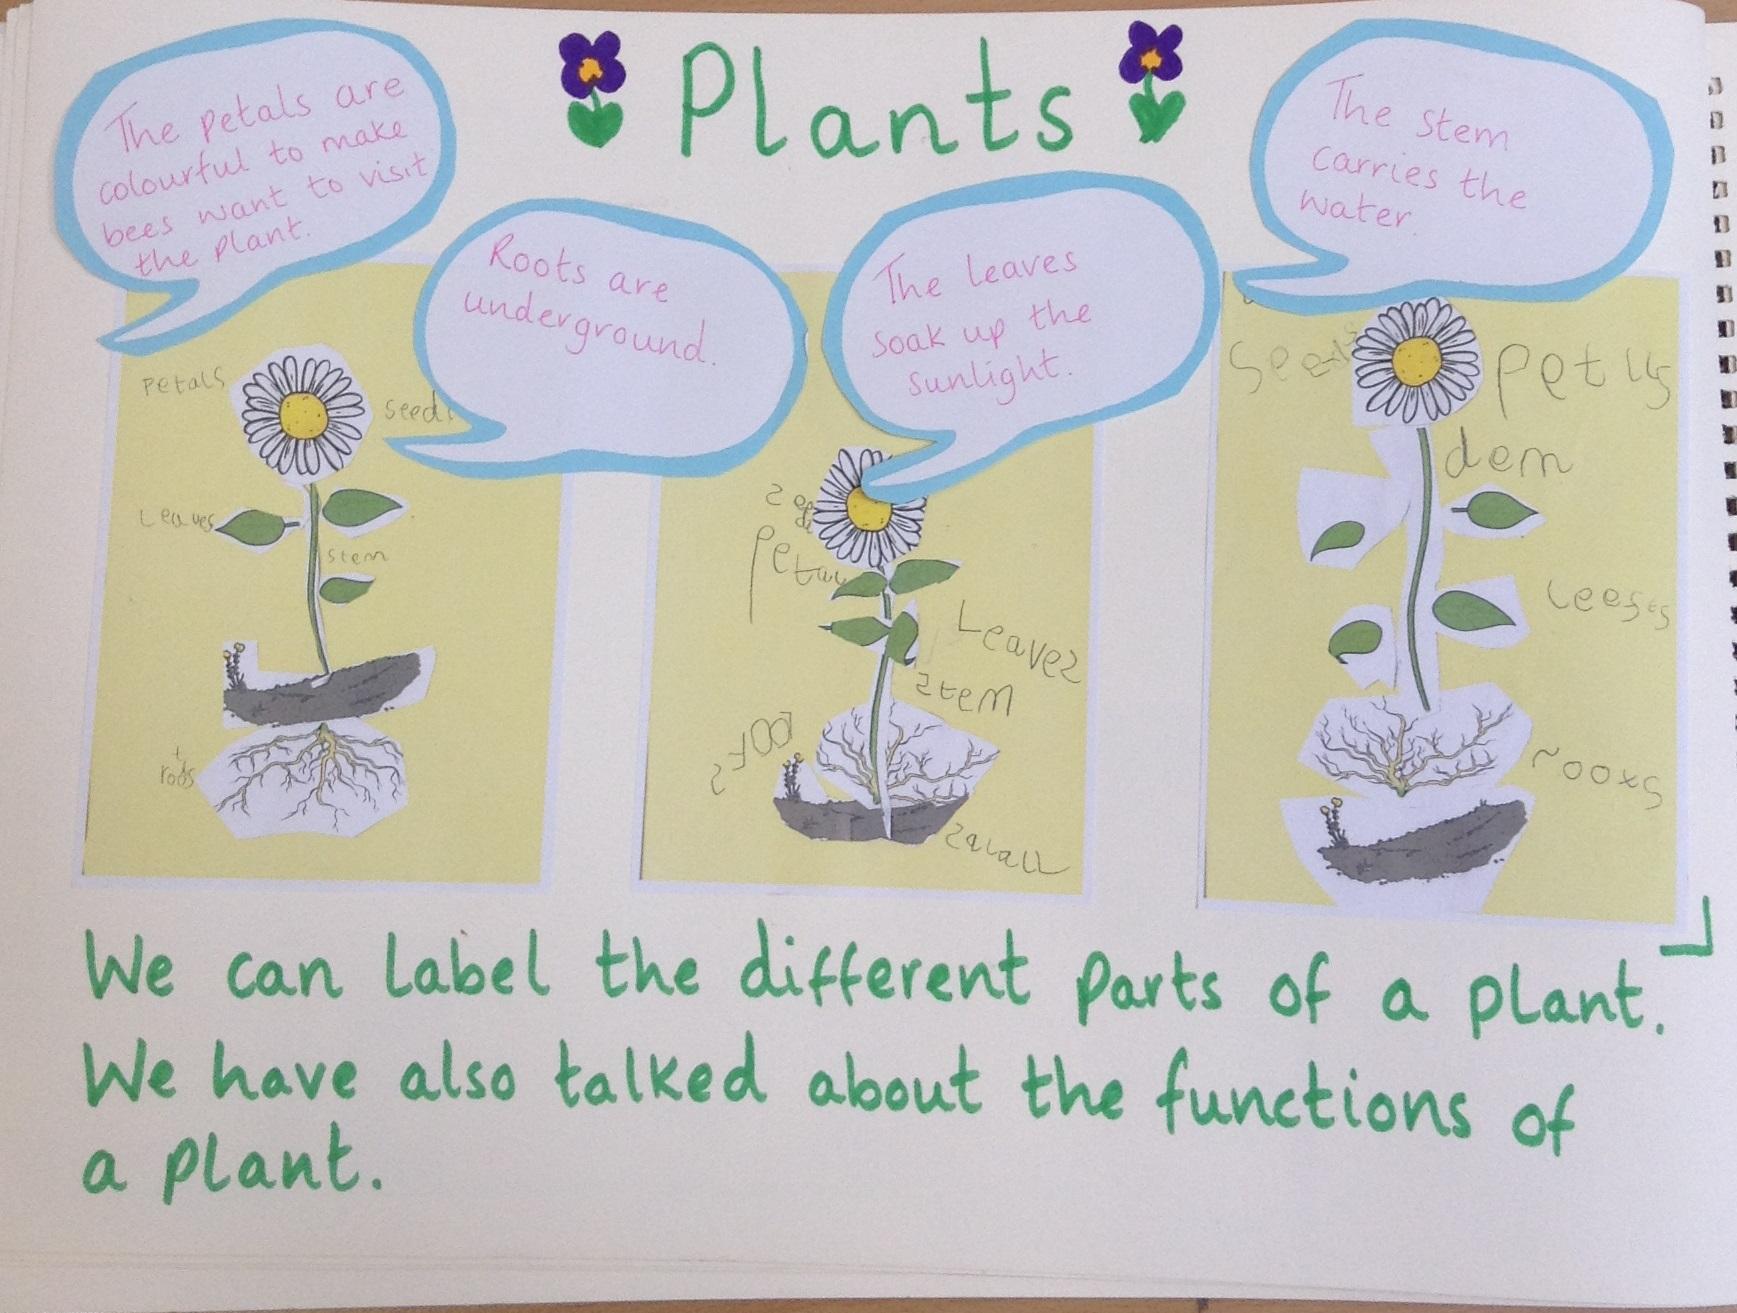 Plants
The petals are
colourful to make
bees want to visit
the plant.
Roots are
underground.
The leaves
soak up the
sunlight.
The stem
carries the
water.
Petals
Leaves
stem
Leaves
stem
petus
dem
rooxs
We can label the different parts of a plant.
We have also talked about the functions of
a plant.